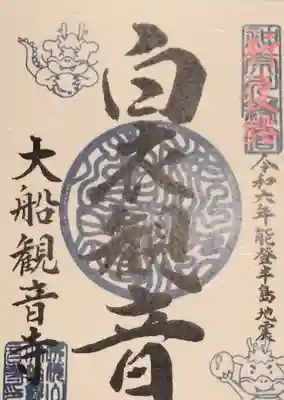 令和六年能登半島地震
白衣観音
大船観音寺